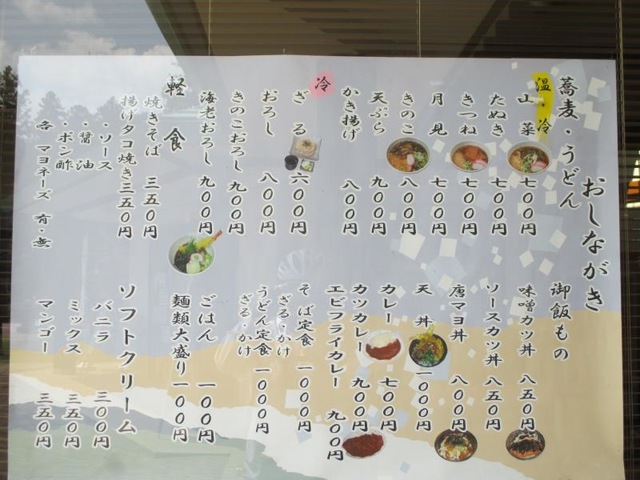 おしながき
蕎麦・うどん
温・冷
山菜 七〇〇円
たぬき 七〇〇円
きつね 七〇〇円
月見 七〇〇円
きのこ 八〇〇円
天ぷら 九〇〇円
かき揚げ 八〇〇円
冷
ざる 六〇〇円
おろし 八〇〇円
きのこおろし 九〇〇円
海老おろし 九〇〇円
軽食
焼きそば 三五〇円
揚げタコ焼き 三五〇円
・ソース
・醤油
・ポン酢
各 マヨネーズ 有・無
御飯もの
味噌カツ丼 八五〇円
ソースカツ丼 八五〇円
唐マヨ丼 八〇〇円
天丼 一〇〇〇円
カレー 七〇〇円
カツカレー 九〇〇円
エビフライカレー 九〇〇円
そば定食 一〇〇〇円
ざる・かけ
うどん定食 一〇〇〇円
ざる・かけ
ごはん 一〇〇円
麺類大盛り 一〇〇円
ソフトクリーム
バニラ 三〇〇円
ミックス 三五〇円
マンゴー 三五〇円